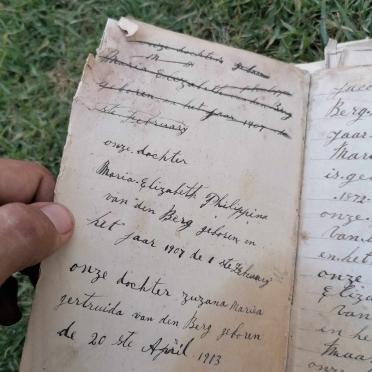 onze dochter geboren
Maria Elizabeth
geboren in het jaar 1907 de
ste February
onze dochter
Maria Elizabeth Philippina
van den Berg geboren in
het jaar 1907 de 1 ste February
onze dochter zuzana Maria
gertruida van den Berg geboren
de 20 ste April 1913
Jaco
Berg
Jaar
Mari
is ge
1872
onze
van
en het
onze
Eliza
van
in he
Maa
onze